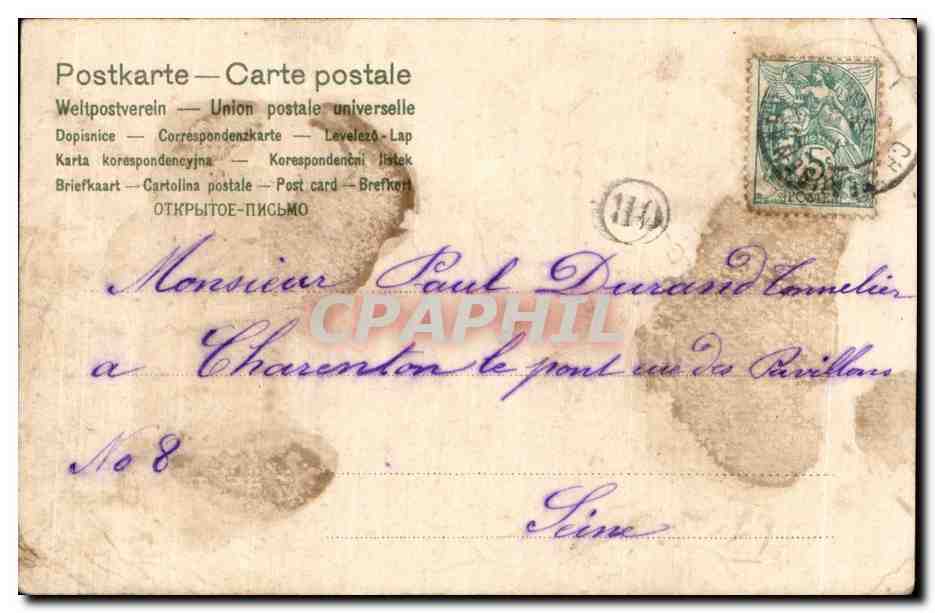 Postkarte — Carte postale
Weltpostverein — Union postale universelle
Dopisnice — Correspondenzkarte — Levelező-Lap
Karta korespondencyjna — Korespondenčni listek
Briefkaart — Cartolina postale — Post card — Brefkort
ОТКРЫТОЕ-ПИСЬМО
5c
POSTES
110
CH
Monsieur Paul Durand Tonnelier
CPAPHIL
a Charenton le pont rue des Pavillons
No 8
Seine